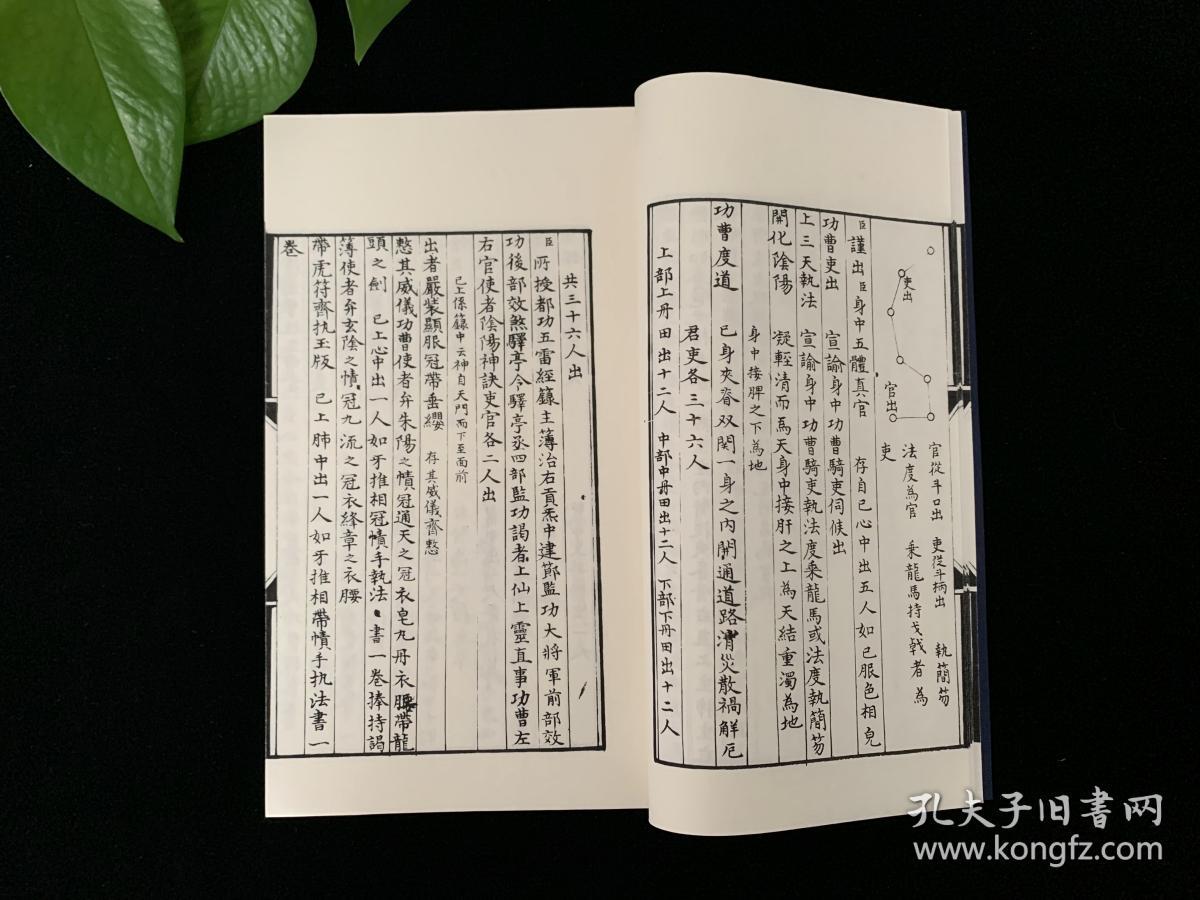 吏出
官出
官從斗口出　吏從斗柄出　執簡笏
法度為官　乘龍馬持戈戟者為
吏
臣謹出臣身中五體真官　存自己心中出五人如己服色相皃
功曹吏出　宣諭身中功曹騎吏伺候出
上三天執法　宣諭身中功曹騎吏執法度乘龍馬或法度執簡笏
開化陰陽　凝輕清而為天身中接肝之上為天結重濁為地
身中接脾之下為地
功曹度道　己身夾脊双関一身之内開通道路消災散禍解厄
君吏各三十六人
上部上丹田出十二人　中部中丹田出十二人　下部下丹田出十二人
共三十六人出
臣所授都功五雷經籙主簿治右貢炁中建節監功大將軍前部效
功後部效煞驛亭令驛亭丞四部監功謁者上仙上靈直事功曹左
右官使者陰陽神訣吏官各二人出
已上係籙中云神自天門而下至面前
出者嚴装顯服冠帶垂纓　存其威儀齊整
整其威儀功曹使者弁朱陽之幘冠通天之冠衣皂九丹衣腰帶龍
頭之劍　已上心中出一人如牙推相冠幘手執法書一卷捧持謁
簿使者弁玄陰之幘冠九流之冠衣絳章之衣腰
帶虎符齊执玉版　已上肺中出一人如牙推相帶幘手执法書一
卷
孔夫子旧書网
www.kongfz.com